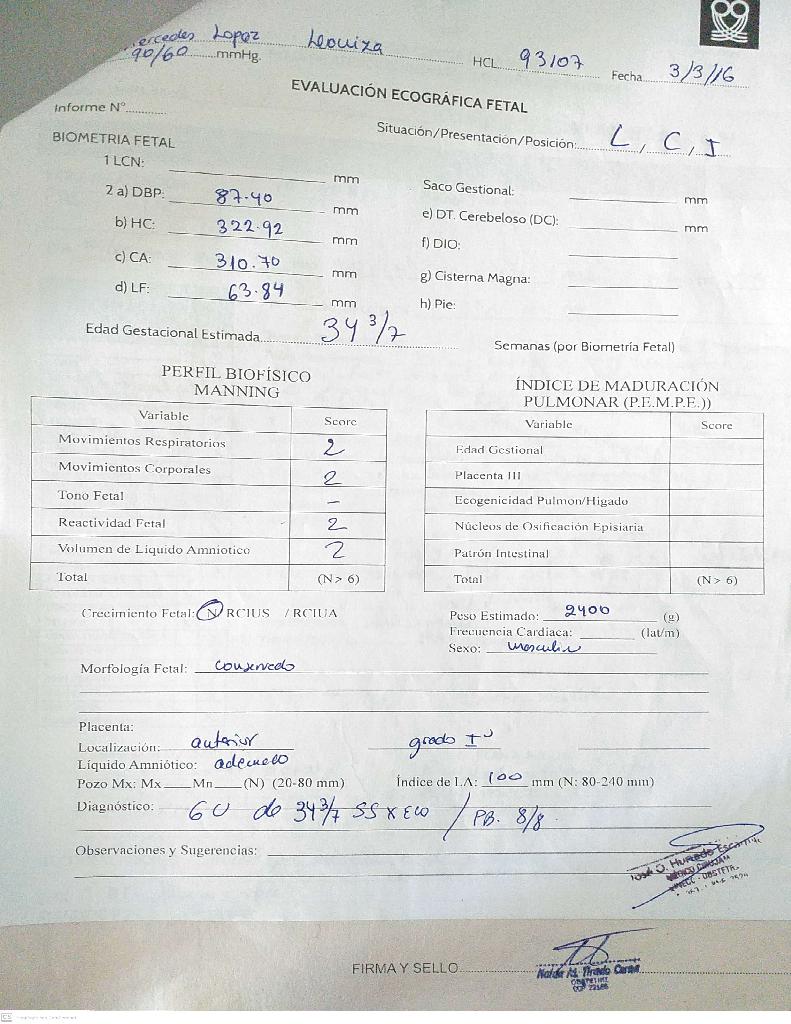 Lopez Leouiza
90/60 mmHg. HCL. 93107 Fecha 3/3/16
EVALUACIÓN ECOGRÁFICA FETAL
Informe N°............
Situación/Presentación/Posición: L, C, I
BIOMETRIA FETAL
1 LCN: mm
Saco Gestional: mm
2 a) DBP: 87.40 mm
e) DT. Cerebeloso (DC): mm
b) HC: 322.92 mm
f) DIO:
c) CA: 310.70 mm
g) Cisterna Magna:
d) LF: 63.84 mm
h) Pie:
Edad Gestacional Estimada 34 3/7 Semanas (por Biometría Fetal)
PERFIL BIOFÍSICO
MANNING
Variable Score
Movimientos Respiratorios 2
Movimientos Corporales 2
Tono Fetal –
Reactividad Fetal 2
Volumen de Líquido Amniotico 2
Total (N > 6)
ÍNDICE DE MADURACIÓN
PULMONAR (P.E.M.P.E.))
Variable Score
Edad Gestional
Placenta III
Ecogenicidad Pulmon/Higado
Núcleos de Osificación Episiaria
Patrón Intestinal
Total (N > 6)
Crecimiento Fetal: N/RCIUS / RCIUA
Peso Estimado: 2400 (g)
Frecuencia Cardiaca: (lat/m)
Sexo: masculin
Morfología Fetal: conservado
Placenta:
Localización: anterior grado I
Líquido Amniótico: adecuado
Pozo Mx: Mx Mn (N) (20-80 mm) Índice de I.A: 100 mm (N: 80-240 mm)
Diagnóstico: GU de 34 3/7 SS x Eco / PB. 8/8
Observaciones y Sugerencias:
FIRMA Y SELLO